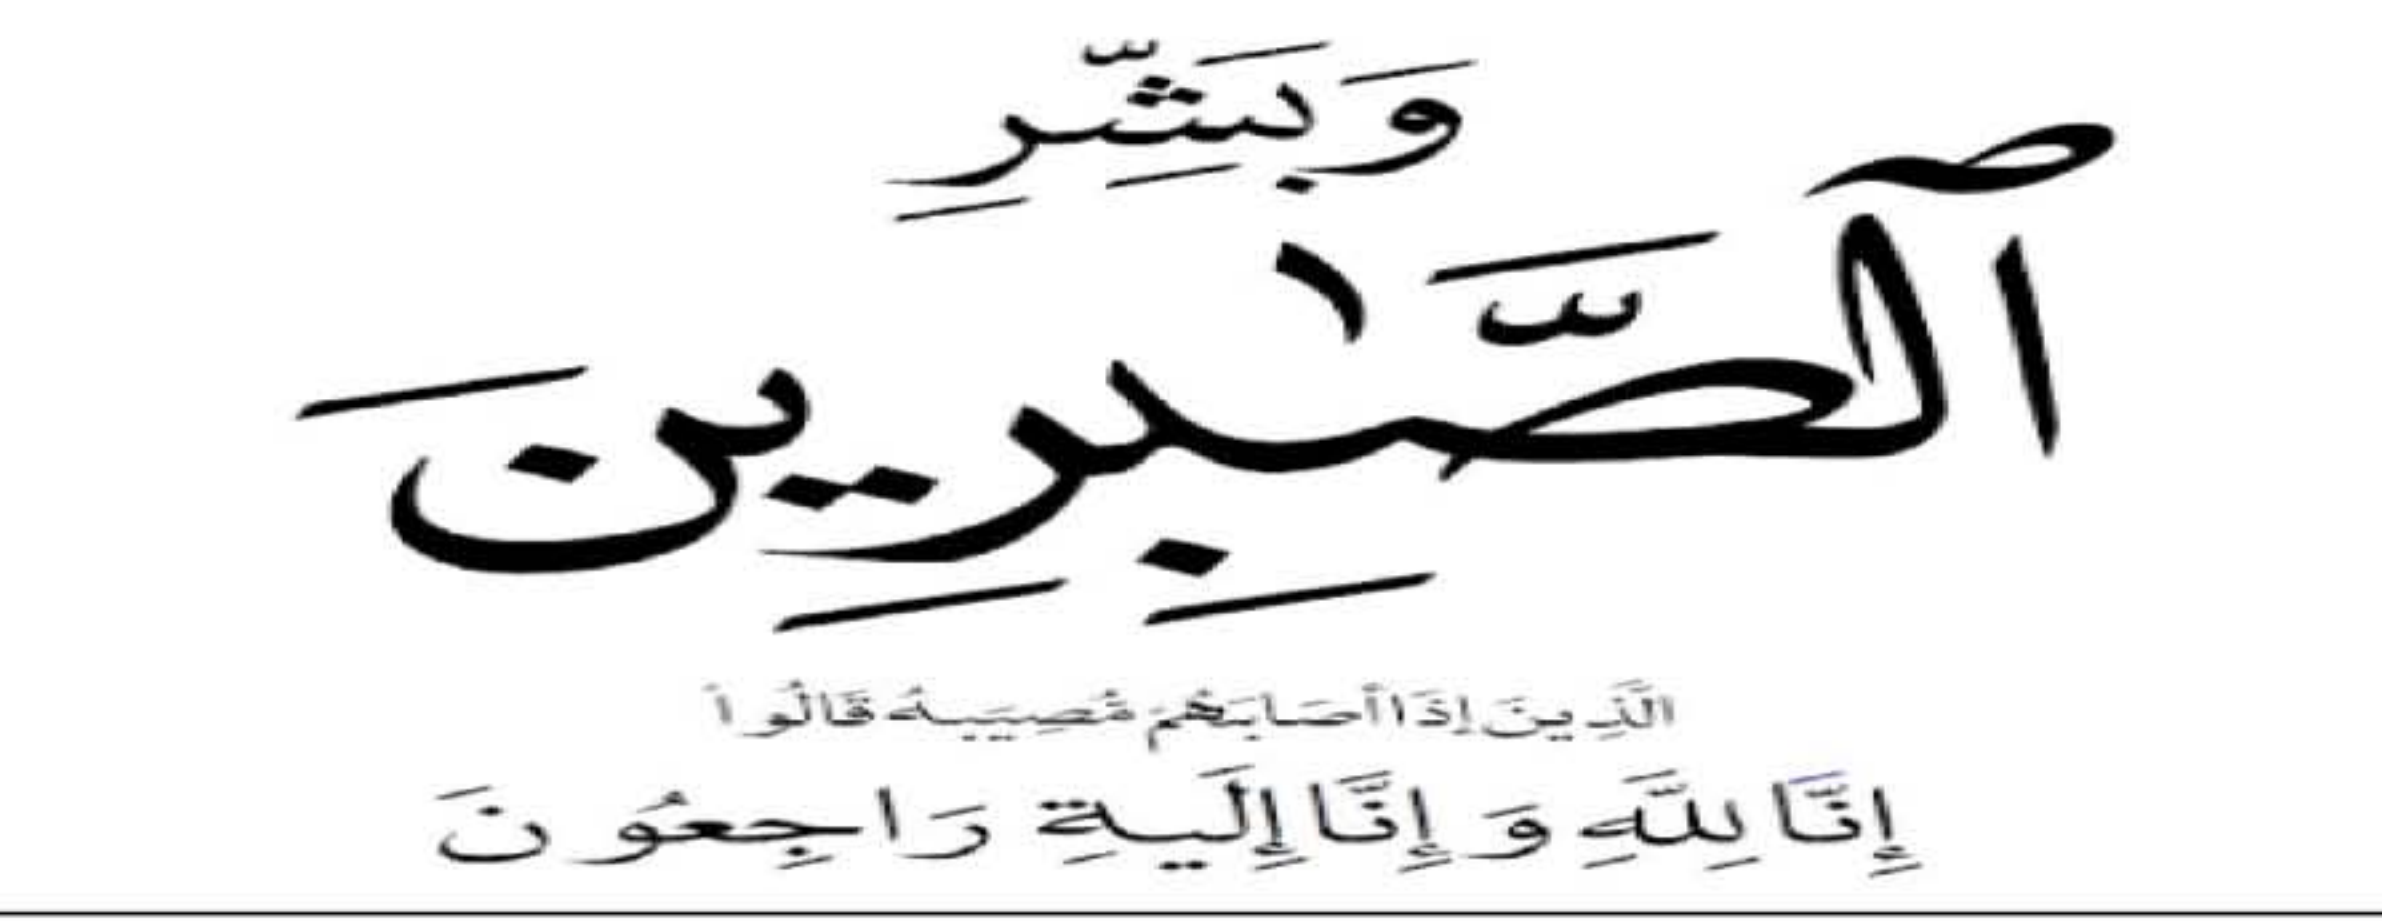 وَبَشِّرِ
ٱلصَّـٰبِرِينَ
الَّذِينَ إِذَا أَصَابَتْهُم مُصِيبَـهُ قَالُواْ
إِنَّا لِلَّهِ وَإِنَّا إِلَيـةِ رَاجِعُونَ